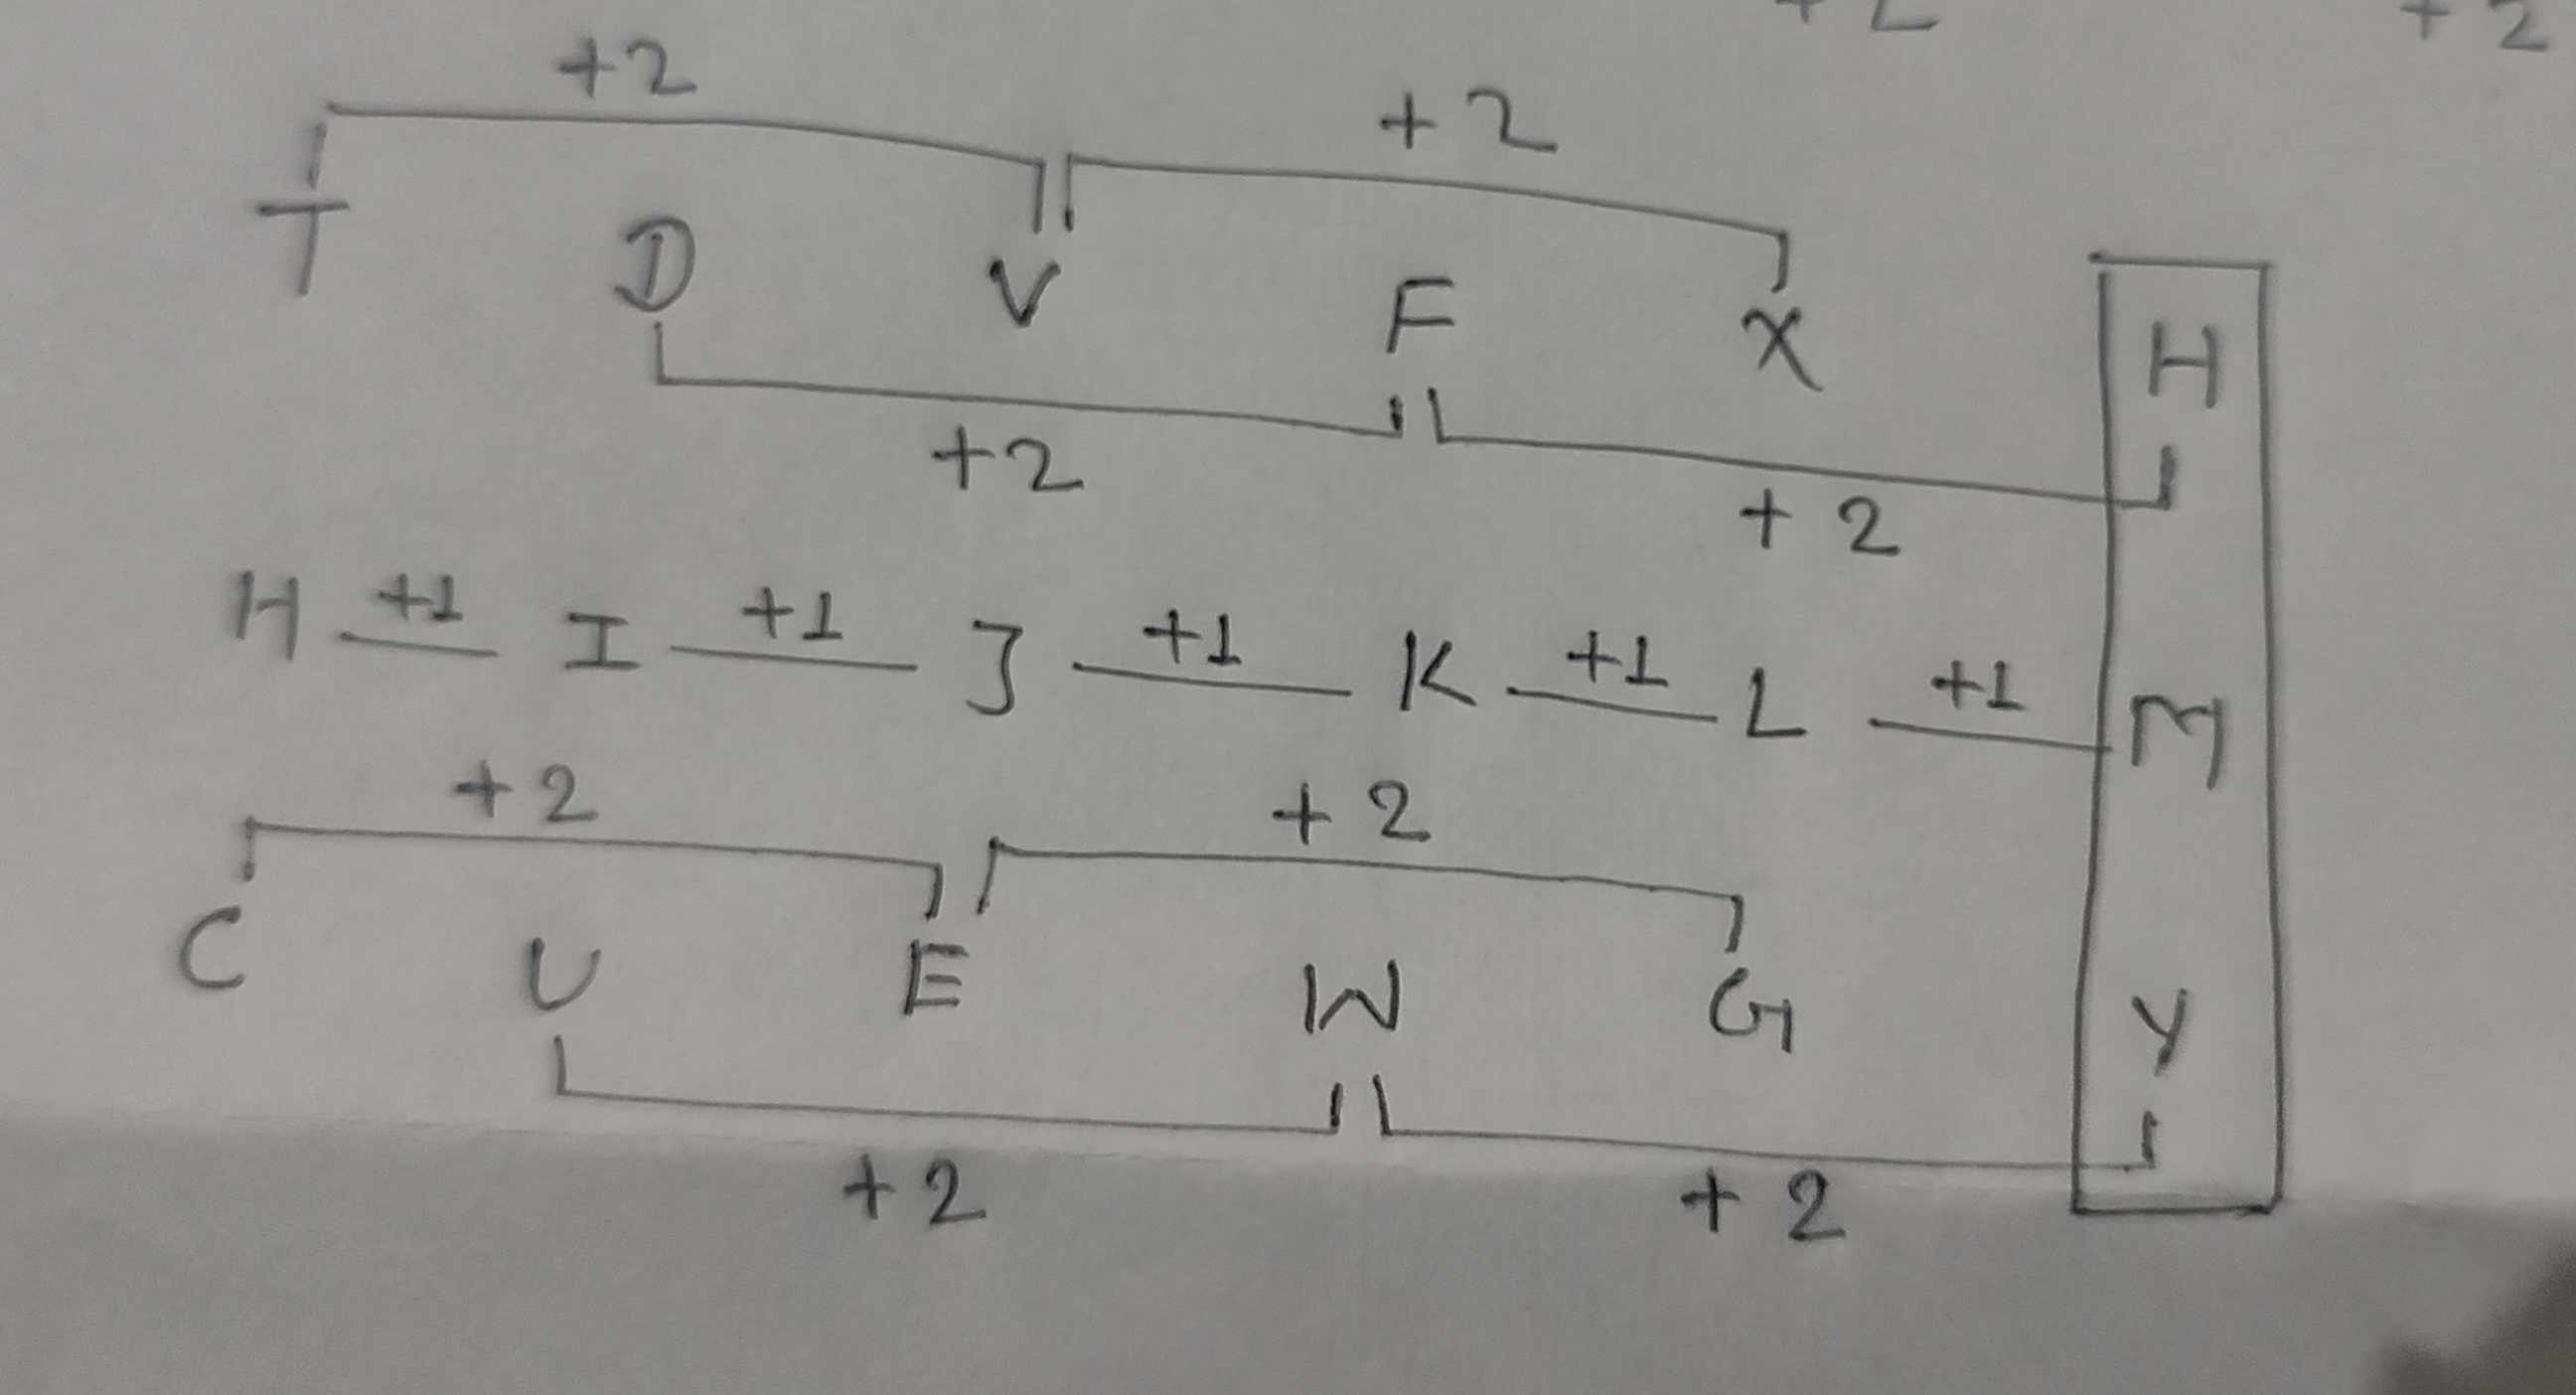 +2 +2
+2 +2
T D V F X H
+2 +2
H +1 I +1 J +1 K +1 L +1 M
+2 +2
C U E W G Y
+2 +2